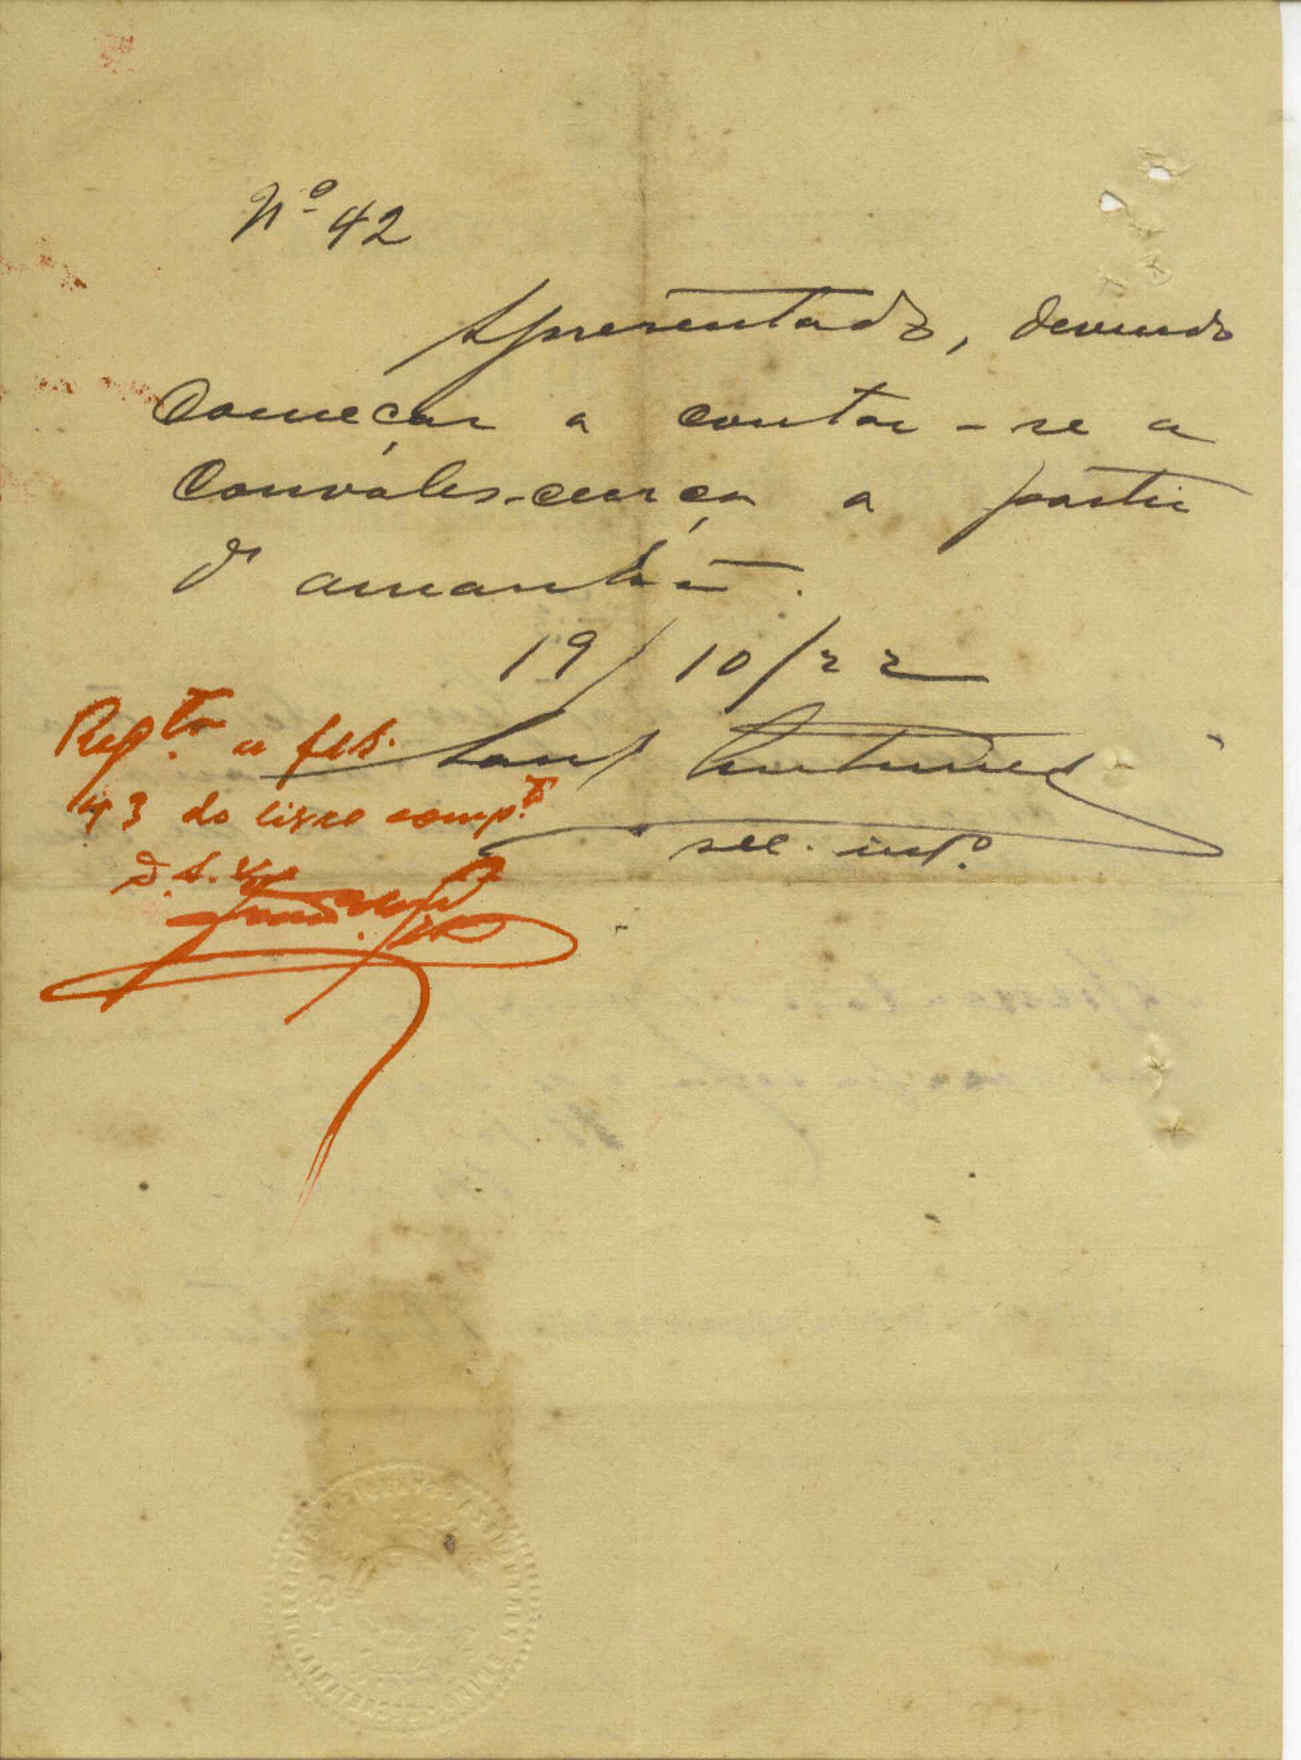 Nº 42
Apresentado, devendo
começar a contar-se a
convalescença a partir
d'amanhã.
19/10/22
Antunes
sec. intº.
Regto a fls.
43 do livro compto